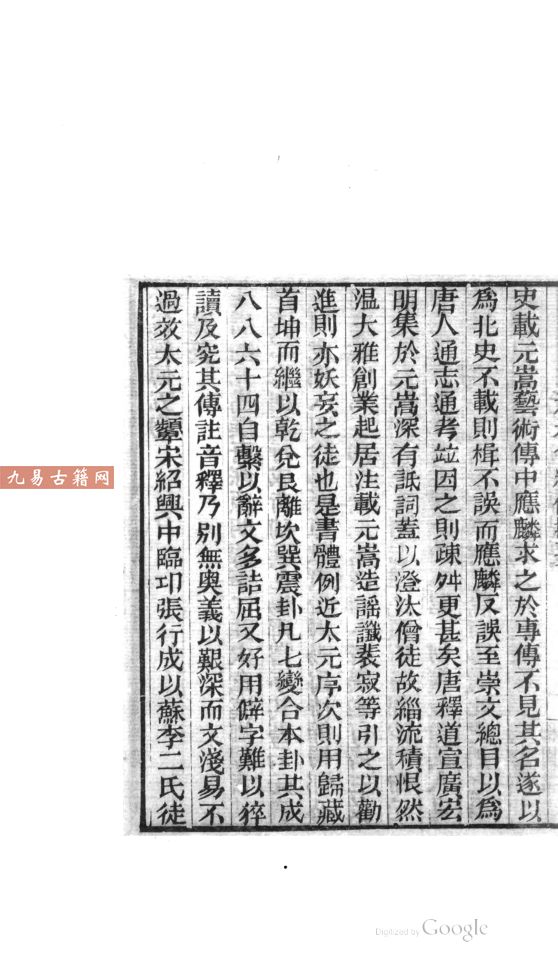 史載元嵩藝術傳中應麟求之於專傳不見其名遂以
爲北史不載則楫不誤而應麟反誤至崇文總目以爲
唐人通志通考竝因之則疎舛更甚矣唐釋道宣廣宏
明集於元嵩深有詆詞蓋以澄汰僧徒故緇流積恨然
温大雅創業起居注載元嵩造謡讖裴寂等引之以勸
進則亦妖妄之徒也是書體例近太元序次則用歸藏
首坤而繼以乾兌艮離坎巽震卦凡七變合本卦其成
八八六十四自繫以辭文多詰屈又好用僻字難以猝
讀及究其傳註音釋乃别無奧義以艱深而文淺易不
過效太元之顰宋紹興中臨卭張行成以蘇李二氏徒
九易古籍网
Digitized by Google